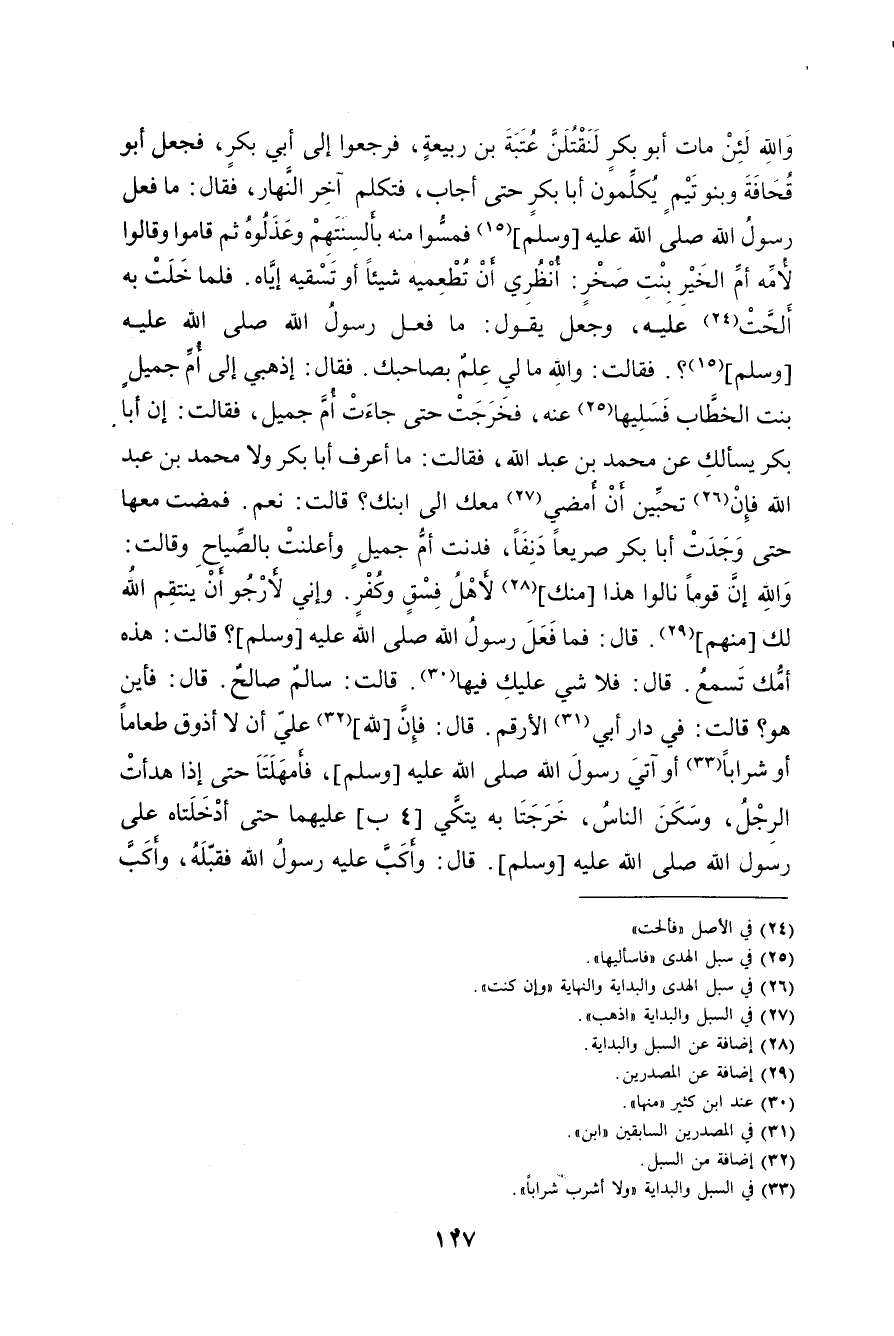 وَالله لَئِنْ مات أبو بكرٍ لَنَقْتُلَنَّ عُتَبَةَ بن ربيعةٍ، فرجعوا إلى أبي بكرٍ، فجعل أبو
قُحَافَةَ وبنو تَيْمٍ يُكلِّمون أبا بكرٍ حتى أجاب، فتكلم آخِر النَّهار، فقال: ما فعل
رسولُ الله صلى الله عليه [وسلم](١٥) فمسُّوا منه بأَلسِنَتَهِمْ وعَذَلُوهُ ثم قاموا وقالوا
لأُمِّه أمِّ الخَيْرِ بِنْتِ صَخْرٍ: أُنْظُري أَنْ تُطْعميه شيئاً أو تَسْقيه إيَّاه. فلما خَلَتْ به
أَلحَّتْ(٢٤) عليه، وجعل يقول: ما فعل رسولُ الله صلى الله عليه
[وسلم](١٥)؟. فقالت: والله ما لي عِلمٌ بصاحبك. فقال: إذهبي إلى أُمِّ جميلٍ
بنت الخطَّاب فَسَليها(٢٥) عنه، فخَرَجَتْ حتى جاءَتْ أُمَّ جميل، فقالت: إن أبا
بكر يسألكِ عن محمد بن عبد الله، فقالت: ما أعرف أبا بكر ولا محمد بن عبد
الله فإِنْ(٢٦) تحبِّين أَنْ أمضي(٢٧) معك الى ابنك؟ قالت: نعم. فمضت معها
حتى وَجَدَتْ أبا بكر صريعاً دَنِفَاً، فدنت أمُّ جميلٍ وأعلنتْ بالصِّياحِ وقالت:
وَالله إنَّ قوماً نالوا هذا [منك](٢٨) لأَهْلُ فِسْقٍ وكُفْرٍ. وإني لأَرْجُو أَنْ ينتقِم اللهُ
لك [منهم](٢٩). قال: فما فَعَلَ رسولُ الله صلى الله عليه [وسلم]؟ قالت: هذه
أمُّك تَسمعُ. قال: فلا شي عليكِ فيها(٣٠). قالت: سالمٌ صالحٌ. قال: فأين
هو؟ قالت: في دار أبي(٣١) الأرقم. قال: فإنَّ [لله](٣٢) عليّ أن لا أذوق طعاماً
أو شراباً(٣٣) أو آتيَ رسولَ الله صلى الله عليه [وسلم]، فأَمهَلَتَا حتى إذا هدأتْ
الرِجْلُ، وسَكَنَ الناسُ، خَرَجَتَا به يتكَّي [٤ ب] عليهما حتى أدْخَلَتاه على
رسول الله صلى الله عليه [وسلم]. قال: وأَكَبَّ عليه رسولُ الله فقبّلَهُ، وأَكَبَّ
(٢٤) في الأصل «فألحت»
(٢٥) في سبل الهدى «فاسأليها».
(٢٦) في سبل الهدى والبداية والنهاية «وإن كنت».
(٢٧) في السبل والبداية «اذهب».
(٢٨) إضافة عن السبل والبداية.
(٢٩) إضافة عن المصدرين.
(٣٠) عند ابن كثير «منها».
(٣١) في المصدرين السابقين «ابن».
(٣٢) إضافة من السبل.
(٣٣) في السبل والبداية «ولا أشرب شراباً».
١٢٧